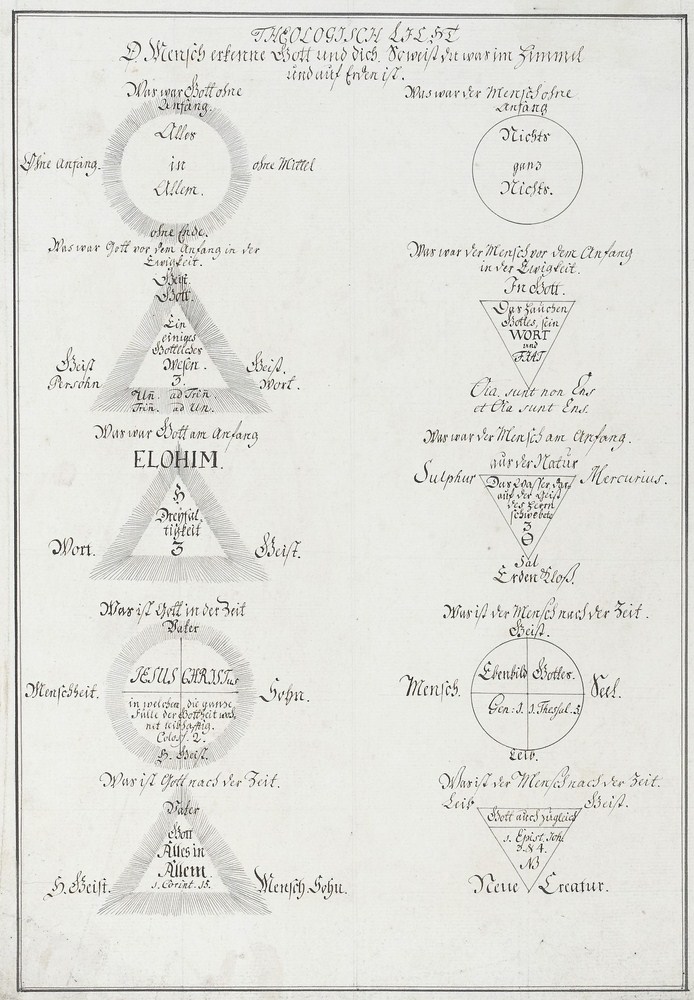 THEOLOGISCH LICHT
O. Mensch erkenne Gott und dich. So weist du was im Himmel
und auf Erden ist.
Was war Gott ohne
Anfang.
Ohne Anfang.
Alles
in
Allem.
ohne Mittel
ohne Ende.
Was war Gott vor dem Anfang in der
Ewigkeit.
Geist
Gott.
Ein
einiges
Göttliches
Wesen.
3.
Un. ad Trin.
Trin. ad Un.
Geist
Persohn
Geist.
Wort.
Was war Gott am Anfang
ELOHIM.
Dreyfal-
tigkeit
3
Wort.
Geist.
Was ist Gott in der Zeit
Vater
JESUS CHRISTus
in welchem die gantze
Fülle der Gottheit woh-
net leibhafftig.
Coloss. 2.
H. Geist.
Menschheit.
Sohn.
Was ist Gott nach der Zeit.
Vater
Gott
Alles in
Allem.
1. Corint. 15.
H. Geist.
Mensch Sohn.
Was war der Mensch ohne
Anfang
Nichts
ganz
Nichts.
Was war der Mensch vor dem Anfang
in der Ewigkeit.
In Gott.
Das hauchen
Gottes, sein
WORT
und
FIAT.
Oia. sunt non Ens
et Oia sunt Ens.
Was war der Mensch am Anfang.
aus der Natur
Sulphur
Mercurius.
Das Wasser dar-
auf der Geist
des Herrn
schwebete
3
Sal
Erden Kloß.
Was ist der Mensch nach der Zeit.
Geist.
Mensch.
Ebenbild Gottes.
Gen: 1. 1. Thessal. 5.
Seel.
Leib.
Was ist der Mensch nach der Zeit.
Leib
Geist.
Gott auch zugleich
1. Epist. Joh:
3. & 4.
NB
Neue Creatur.